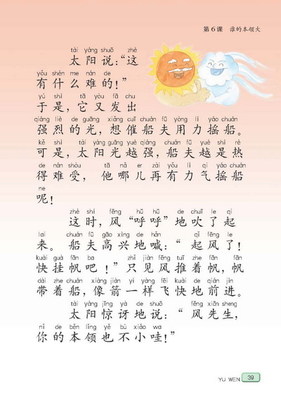 第6课 谁的本领大
tài yáng shuō zhè
太阳说:“这
yǒu shén me nán de
有什么难的!”
yú shì tā yòu fā chū
于是,它又发出
qiáng liè de guāng xiǎng cuī chuán fū yòng lì yáo chuán
强烈的光,想催船夫用力摇船。
kě shì tài yáng guāng yuè qiáng chuán fū yuè shì rè
可是,太阳光越强,船夫越是热
de nán shòu tā nǎ er zài yǒu lì qì yáo chuán
得难受,他哪儿再有力气摇船
ne
呢!
zhè shí fēng hū hū de chuī le qǐ
这时,风“呼呼”地吹了起
lái chuán fū gāo xìng de hǎn qǐ fēng le
来。船夫高兴地喊:“起风了!
kuài guà fān ba zhǐ jiàn fēng tuī zhe fān fān
快挂帆吧!”只见风推着帆,帆
dài zhe chuán xiàng jiàn yí yàng fēi kuài de qián jìn
带着船,像箭一样飞快地前进。
tài yáng jīng yà de shuō fēng xiān sheng
太阳惊讶地说:“风先生,
nǐ de běn lǐng yě bù xiǎo wa
你的本领也不小哇!”
YU WEN 39